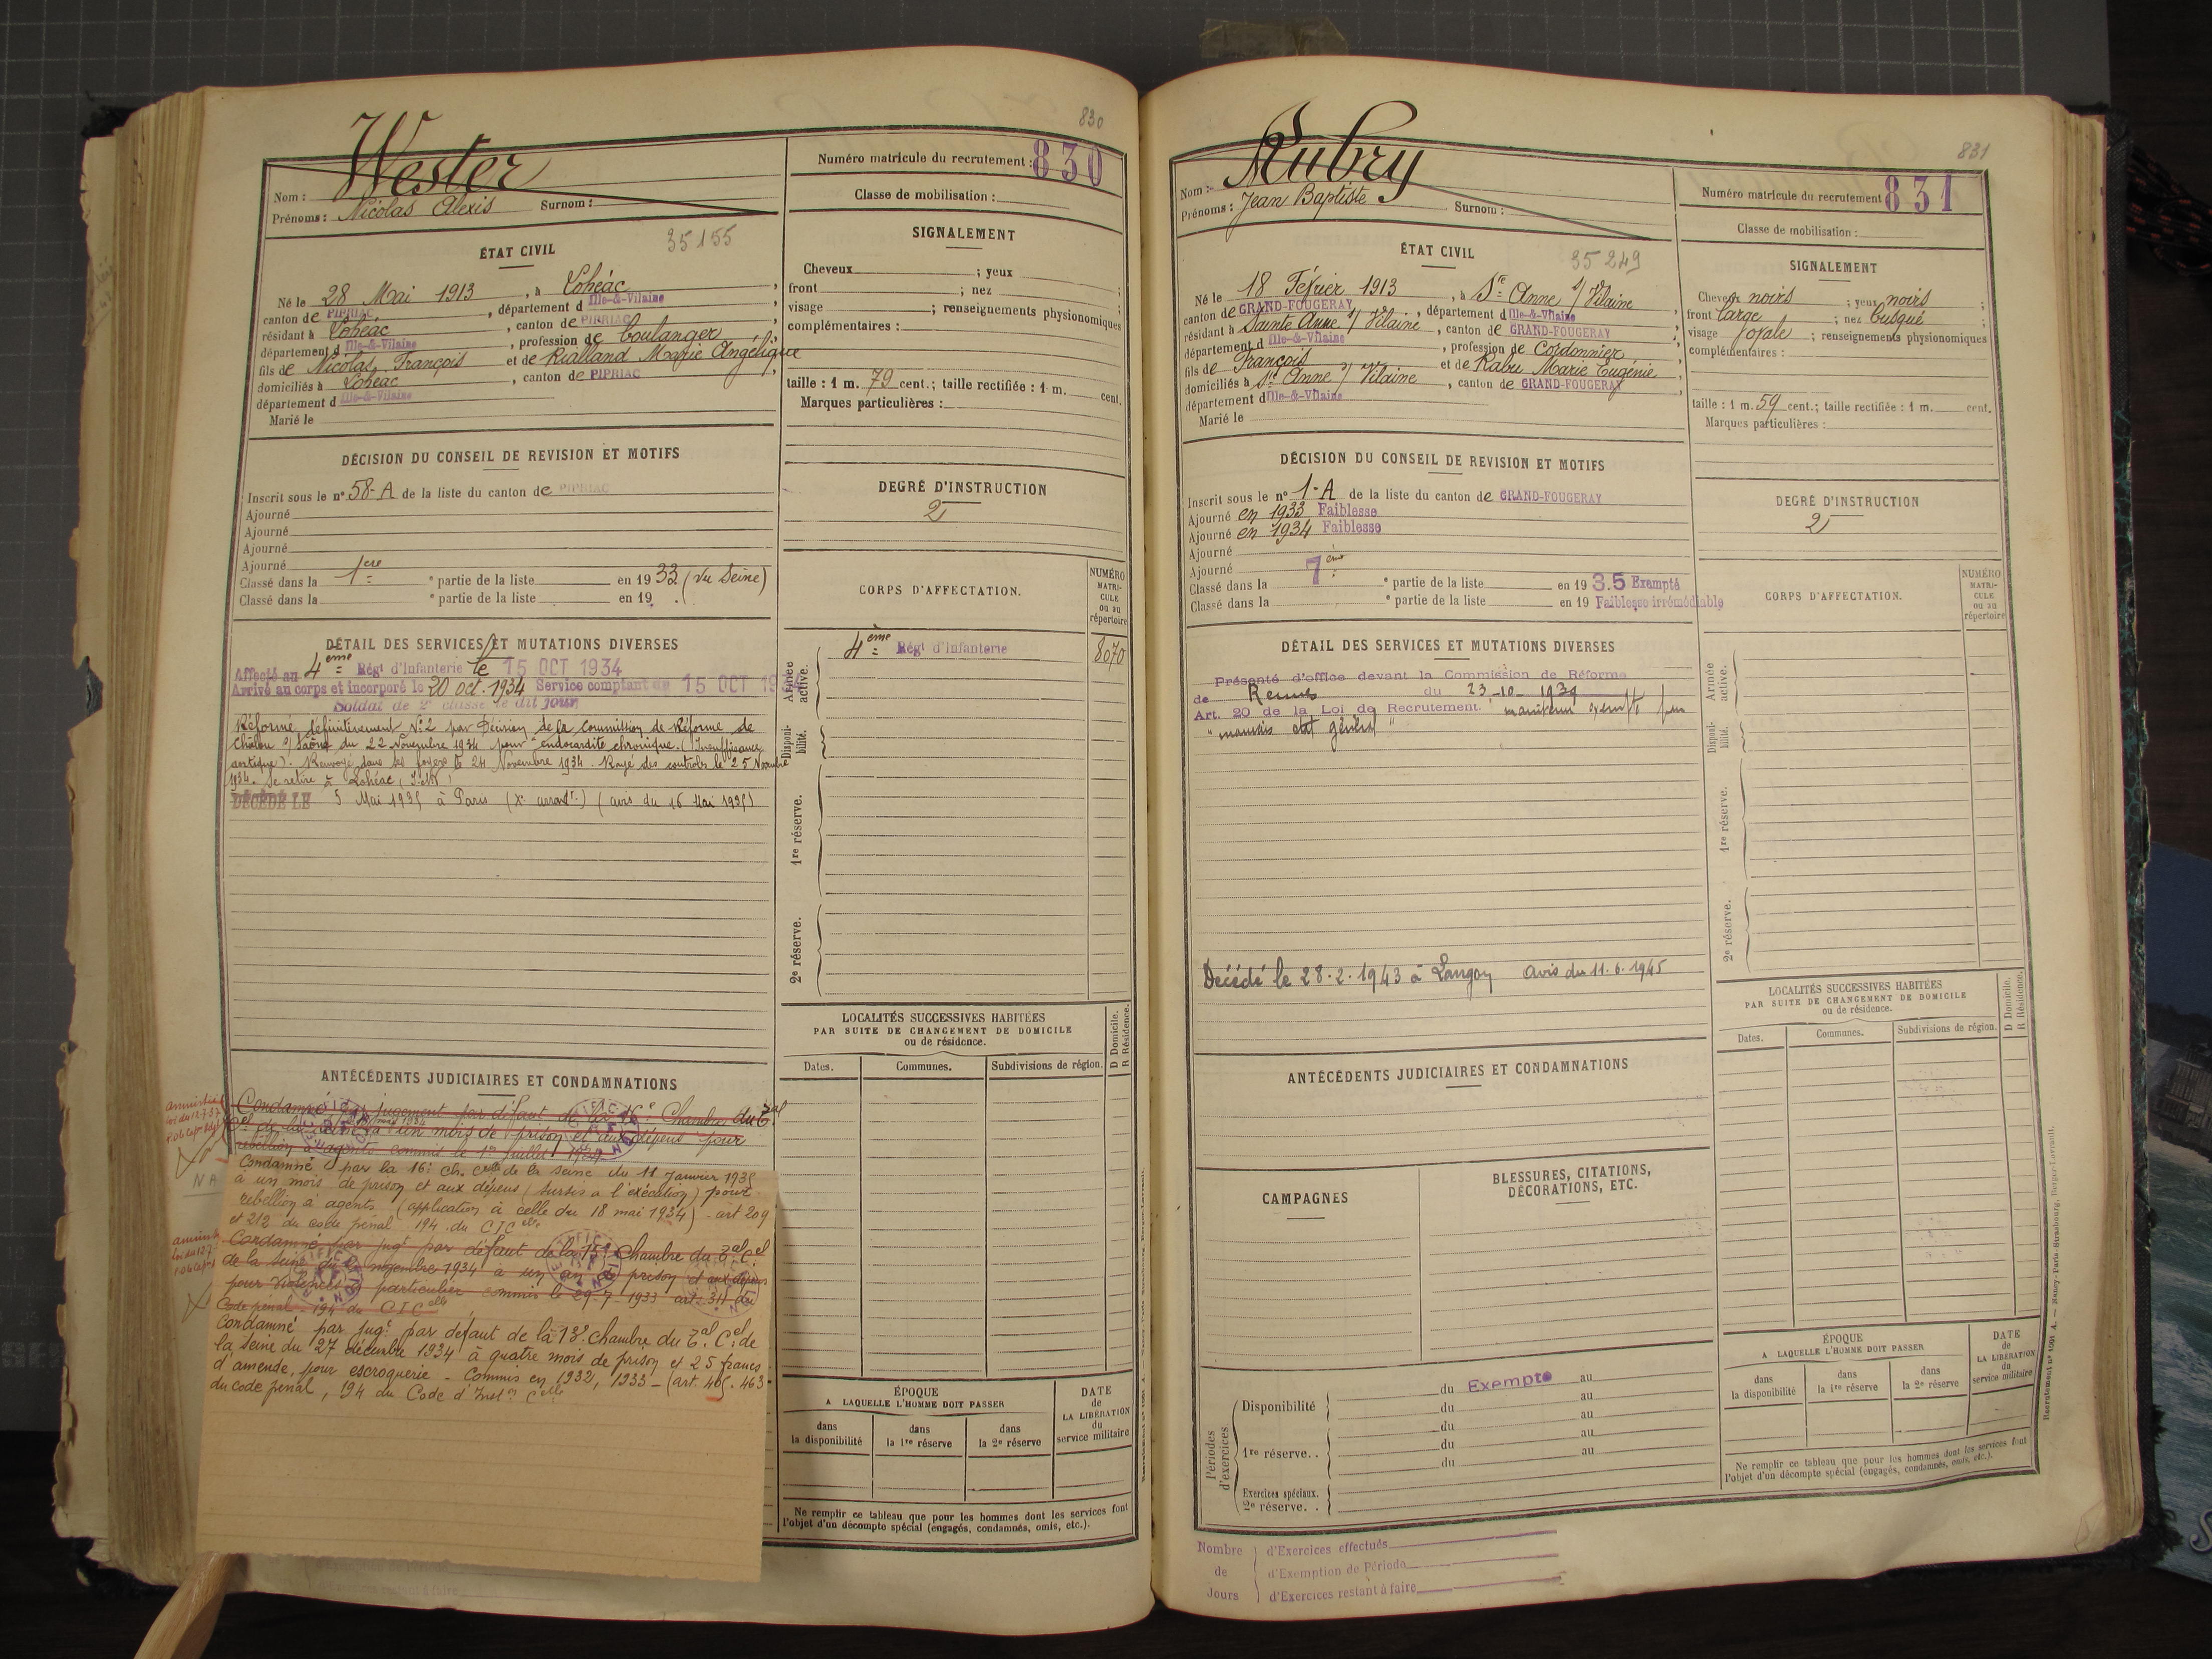 830
Wester
Nom :
Prénoms : Nicolas Alexis Surnom :
Numéro matricule du recrutement : 830
Classe de mobilisation :
ÉTAT CIVIL
35155
Né le 28 Mai 1913, à Lohéac,
canton de PIPRIAC, département d Ille-&-Vilaine,
résidant à Lohéac, canton de PIPRIAC,
département d Ille-&-Vilaine, profession de boulanger,
fils de Nicolas, François et de Rialland Marie Angélique
domiciliés à Lohéac, canton de PIPRIAC,
département d Ille-&-Vilaine
Marié le
SIGNALEMENT
Cheveux ; yeux ;
front ; nez ;
visage ; renseignements physionomiques
complémentaires :
taille : 1 m. 79 cent.; taille rectifiée : 1 m. cent.
Marques particulières :
DÉCISION DU CONSEIL DE REVISION ET MOTIFS
Inscrit sous le n° 58-A de la liste du canton de PIPRIAC
Ajourné
Ajourné
Ajourné
Ajourné
Classé dans la 1ere partie de la liste en 1933 (Vu Seine)
Classé dans la e partie de la liste en 19 .
DEGRÉ D'INSTRUCTION
2
CORPS D'AFFECTATION.
NUMÉRO MATRICULE ou au répertoire
DÉTAIL DES SERVICES ET MUTATIONS DIVERSES
Affecté au 4ème Régt d'Infanterie le 15 OCT 1934
Arrivé au corps et incorporé le 20 oct. 1934 Service comptant du 15 OCT 19
Soldat de 2e classe le dit jour
Réformé définitivement N° 2 par Décision de la Commission de Réforme de
Châlon s/ Saône du 22 Novembre 1934 pour "endocardite chronique. (Insuffisance
aortique). Renvoyé dans ses foyers le 24 Novembre 1934. Rayé des contrôles le 25 Novembre
1934. Se retire à Lohéac (I.et V.)
DÉCÉDÉ LE 5 Mai 1935 à Paris (Xe arrondt.) (avis du 16 Mai 1935)
Armée active.
4ème Régt d'Infanterie
8070
Disponibilité.
1re réserve.
2e réserve.
LOCALITÉS SUCCESSIVES HABITÉES
PAR SUITE DE CHANGEMENT DE DOMICILE
ou de résidence.
D Domicile.
R Résidence.
Dates. Communes. Subdivisions de région.
ANTÉCÉDENTS JUDICIAIRES ET CONDAMNATIONS
Condamné par jugement par défaut de la 16e Chambre du Tal
Cel de la Seine à un mois de prison et aux dépens pour
rébellion à agents commis le 1er Juillet
NA
Condamné par la 16e ch. Clle de la Seine du 11 Janvier 1935
à un mois de prison et aux dépens (sursis à l'exécution) pour
rebellion à agents (application à celle du 18 mai 1934) - art 209
et 212 du code pénal 194 du CIC elle
Condamné par jugt par défaut de la 15e Chambre du Tal Cel
de la Seine du novembre 1934 à un an de prison et aux dépens
pour violences à particulier commis le 29-7-1933 art. 311 du
Code pénal - 194 du CIC elle
Condamné par jugt par défaut de la 13e chambre du Tal Cel de
la Seine du 27 décembre 1934 à quatre mois de prison et 25 francs
d'amende, pour escroquerie - Commis en 1932, 1933 - (art. 405. 463
du code pénal, 194 du Code d'Inston Celle
ÉPOQUE
A LAQUELLE L'HOMME DOIT PASSER
dans la disponibilité
dans la 1re réserve
dans la 2e réserve
DATE de LA LIBÉRATION du service militaire
Ne remplir ce tableau que pour les hommes dont les services font
l'objet d'un décompte spécial (engagés, condamnés, omis, etc.).
831
Aubry
Nom :
Prénoms : Jean Baptiste Surnom :
Numéro matricule du recrutement 831
Classe de mobilisation :
ÉTAT CIVIL
35249
Né le 18 Février 1913, à Ste Anne s/ Vilaine
canton de GRAND-FOUGERAY, département d Ille-&-Vilaine,
résidant à Sainte Anne s/ Vilaine, canton de GRAND-FOUGERAY,
département d Ille-&-Vilaine, profession de Cordonnier,
fils de François et de Rabu Marie Eugénie,
domiciliés à Ste Anne s/ Vilaine, canton de GRAND-FOUGERAY,
département d Ille-&-Vilaine
Marié le
SIGNALEMENT
Cheveux noirs ; yeux noirs ;
front large ; nez busqué ;
visage ovale ; renseignements physionomiques
complémentaires :
taille : 1 m. 59 cent.; taille rectifiée : 1 m. cent.
Marques particulières :
DÉCISION DU CONSEIL DE REVISION ET MOTIFS
Inscrit sous le n° 1-A de la liste du canton de GRAND-FOUGERAY
Ajourné en 1933 Faiblesse
Ajourné en 1934 Faiblesse
Ajourné
Ajourné
Classé dans la 7ème partie de la liste en 19 3.5 Exempté
Classé dans la e partie de la liste en 19 Faiblesse irrémédiable
DEGRÉ D'INSTRUCTION
2
CORPS D'AFFECTATION.
NUMÉRO MATRICULE ou au répertoire
DÉTAIL DES SERVICES ET MUTATIONS DIVERSES
Présenté d'office devant la Commission de Réforme
de Rennes du 23-10-1939
Art. 20 de la Loi de Recrutement. maintenu exempté pour
"mauvais état général"
Décédé le 28.2.1943 à Langon Avis du 11.6.1945
Armée active.
Disponibilité.
1re réserve.
2e réserve.
LOCALITÉS SUCCESSIVES HABITÉES
PAR SUITE DE CHANGEMENT DE DOMICILE
ou de résidence.
D Domicile.
R Résidence.
Dates. Communes. Subdivisions de région.
ANTÉCÉDENTS JUDICIAIRES ET CONDAMNATIONS
CAMPAGNES
BLESSURES, CITATIONS,
DÉCORATIONS, ETC.
Périodes d'exercices
Disponibilité
du Exempté au
du au
du au
1re réserve. .
du au
du au
Exercices spéciaux.
2e réserve. .
ÉPOQUE
A LAQUELLE L'HOMME DOIT PASSER
dans la disponibilité
dans la 1re réserve
dans la 2e réserve
DATE de LA LIBÉRATION du service militaire
Ne remplir ce tableau que pour les hommes dont les services font
l'objet d'un décompte spécial (engagés, condamnés, omis, etc.).
Nombre de Jours
d'Exercices effectués
d'Exemption de Période
d'Exercices restant à faire